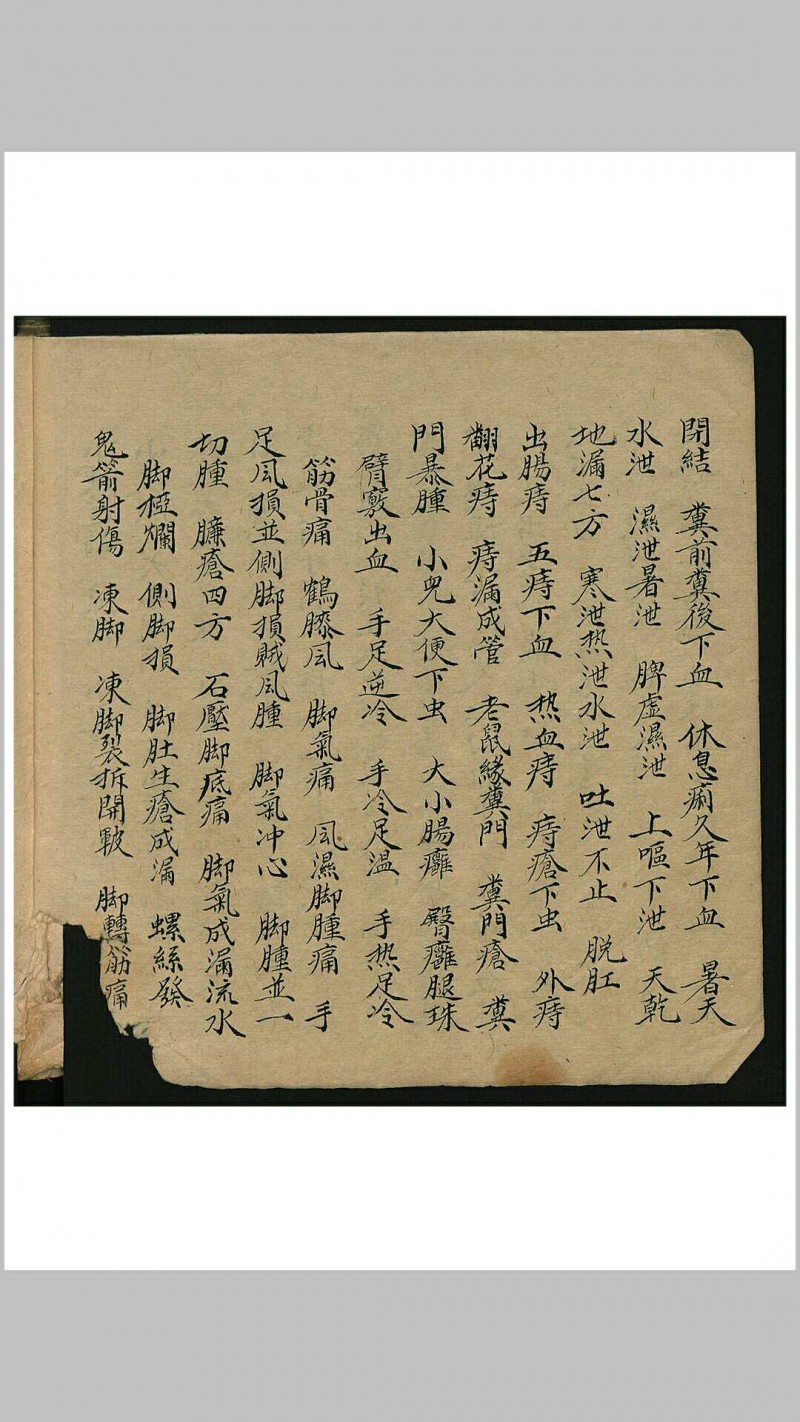 閉結 糞前糞後下血 休息痢久年下血 暑天
水泄 濕泄暑泄 脾虛濕泄 上嘔下泄 天乾
地漏七方 寒泄热泄水泄 吐泄不止 脱肛
出腸痔 五痔下血 热血痔 痔瘡下虫 外痔
翻花痔 痔漏成管 老鼠緣糞門 糞門瘡 糞
門暴腫 小兒大便下虫 大小腸癰 臀癰腿珠
臂竅出血 手足逆冷 手冷足温 手热足冷
筋骨痛 鶴膝风 脚氣痛 风濕脚腫痛 手
足风損並側脚損賊风腫 脚氣冲心 脚腫並一
切腫 臁瘡四方 石壓脚底痛 脚氣成漏流水
脚椏爛 側脚損 脚肚生瘡成漏 螺絲發
鬼箭射傷 凍脚 凍脚裂拆開皸 脚轉筋痛